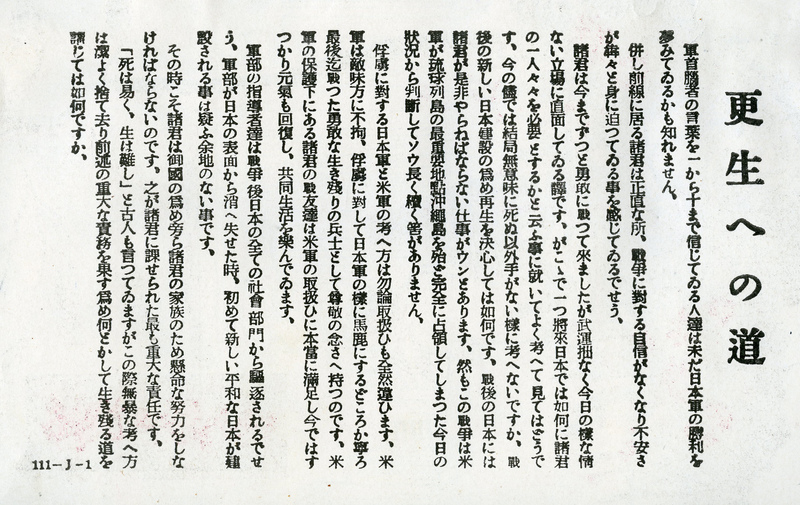 更生への道
軍首腦者の言葉を一から十まで信じてゐる人達は未だ日本軍の勝利を
夢みてゐるかも知れません。
併し前線に居る諸君は正直な所、戰爭に對する自信がなくなり不安さ
が犇々と身に迫つてゐる事を感じてゐるでせう。
諸君は今までずつと勇敢に戰つて來ましたが武運拙なく今日の樣な情
ない立場に直面してゐる譯です。がこゝで一つ將來日本では如何に諸君
の一人々々を必要とするかと云ふ事に就いてよく考へて見てはどうで
す。今の儘では結局無意味に死ぬ以外手がない樣に考へないですか。戰
後の新しい日本建設の爲め再生を決心しては如何です。戰後の日本には
諸君が是非やらねばならない仕事がウンとあります。然もこの戰爭は米
軍が琉球列島の最重要地點沖繩島を殆ど完全に占領してしまつた今日の
狀況から判斷してソウ長く續く筈がありません。
俘虜に對する日本軍と米軍の考へ方は勿論取扱ひも全然違ひます。米
軍は敵味方に不拘、俘虜に對して日本軍の樣に馬鹿にするどころか寧ろ
最後迄戰つた勇敢な生き殘りの兵士として尊敬の念さへ持つのです。米
軍の保護下にある諸君の戰友達は米軍の取扱ひに本當に滿足し今ではす
つかり元氣も回復し、共同生活を樂んでゐます。
軍部の指導者達は戰爭後日本の全ての社會部門から驅逐されるでせ
う、軍部が日本の表面から消へ失せた時、初めて新しい平和な日本が建
設される事は疑ふ余地のない事です。
その時こそ諸君は御國の爲め旁ら諸君の家族のため懸命な努力をしな
ければならないのです。之が諸君に課せられた最も重大な責任です。
「死は易く、生は難し」と古人も言つてゐますがこの際無暴な考へ方
は潔よく捨て去り前述の重大な責務を果す爲め何とかして生き殘る道を
講じては如何ですか。
111-J-1